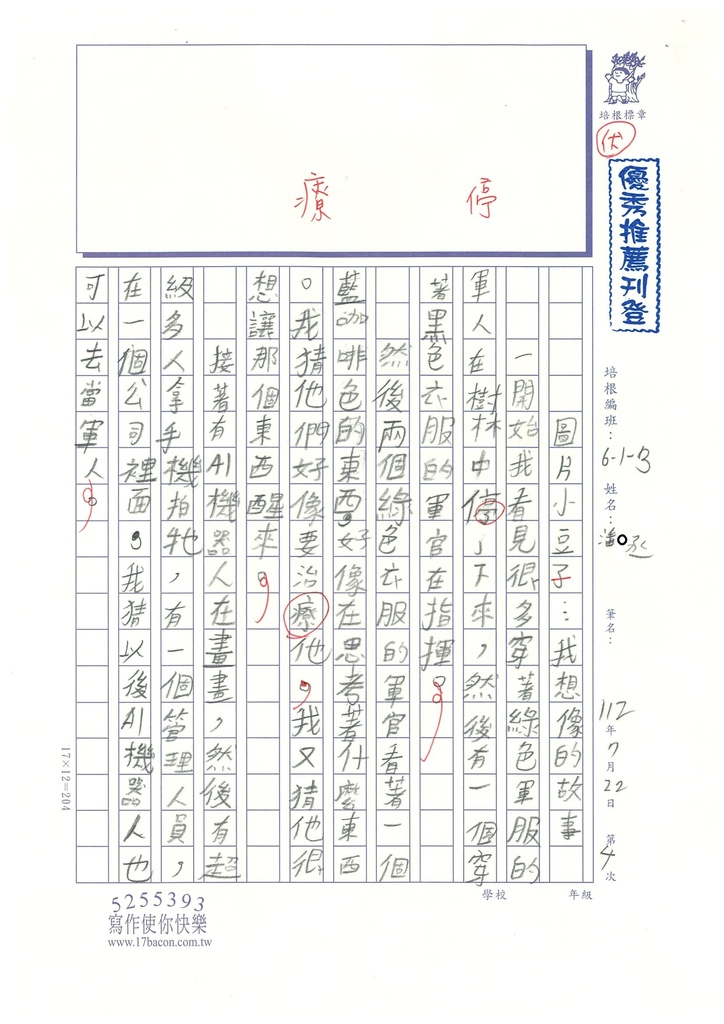 培根標章
伏
優秀推薦刊登
培根編班：6-1-B
姓名：潘○丞
筆名：
112年7月22日 第4次
學校 年級
停
療
圖片小豆子：我想像的故事
一開始我看見很多穿著綠色軍服的
軍人在樹林中停了下來，然後有一個穿
著黑色衣服的軍官在指揮。
然後兩個綠色衣服的軍官看著一個
藍咖啡色的東西，好像在思考著什麼東西
。我猜他們好像要治療他，我又猜他很
想讓那個東西醒來。
接著有AI機器人在畫畫，然後有超
級多人拿手機拍牠，有一個管理人員，
在一個公司裡面。我猜以後AI機器人也
可以去當軍人。
17×12=204
5255393
寫作使你快樂
www.17bacon.com.tw